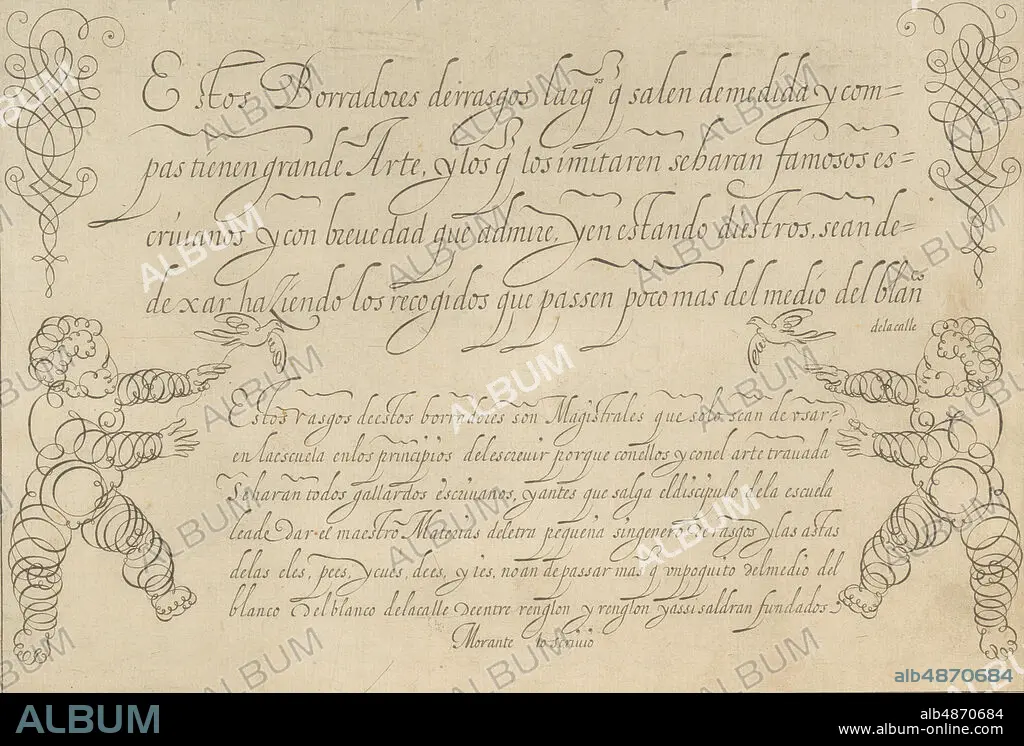 Estos Borradores derrasgos largos q̃ salen demedida y com=
pas tienen grande Arte, y los q̃ los imitaren se haran famosos es=
criuanos y con breuedad que admire, y en estando diestros, sean de=
de xar haziendo los recogidos que passen poco mas del medio del blanco
dela calle
Estos rasgos de estos borradores son Magistrales que solo sean de vsar,
en la escuela en los principios del escreuir porque con ellos y con el arte trauada
Se haran todos gallardos escriuanos, y antes que salga el discipulo de la escuela
leade Dar el maestro Materias de letra pequeña sin genero De rasgos y las astas
delas eles, pees, y cues, dees, y ies, no an de passar mas q̃ vn poquito del medio del
blanco Del blanco dela calle De entre renglon y renglon y assi saldran fundados
Morante lo scriuio
ALBUM
alb4870684
ALBUM
alb4870684
www.album-online.com